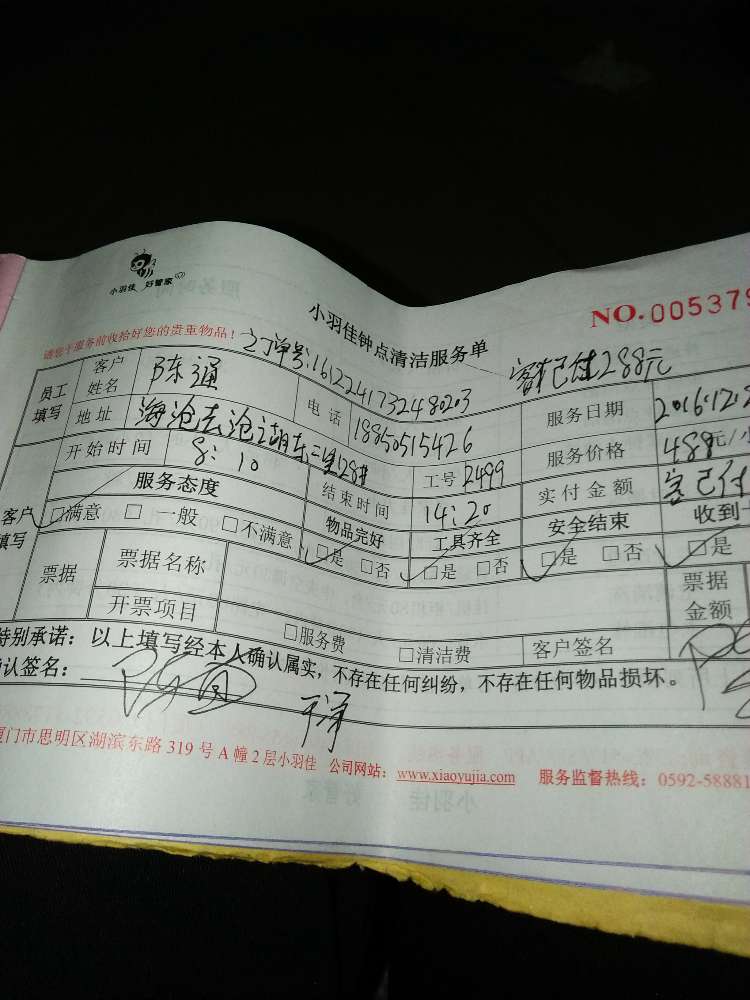 小羽佳 好管家
小羽佳钟点清洁服务单
NO.005379
请您于服务前收拾好您的贵重物品!
订单号:1612241732480203
客户已付288元
员工填写 客户姓名 陈通 电话 18850515426 服务日期 2016.12.2
地址 海沧区沧湖东二里128# 工号 2499 服务价格 488元/小
开始时间 8:10 结束时间 14:20 实付金额 客已付
客户填写 服务态度 物品完好 工具齐全 安全结束 收到
□满意 □一般 □不满意 □是 □否 □是 □否 □是 □否 □是
票据 票据名称 票据金额
开票项目 □服务费 □清洁费 客户签名
特别承诺:以上填写经本人确认属实,不存在任何纠纷,不存在任何物品损坏。
确认签名:
厦门市思明区湖滨东路 319 号 A 幢 2 层小羽佳 公司网站:www.xiaoyujia.com 服务监督热线:0592-58881